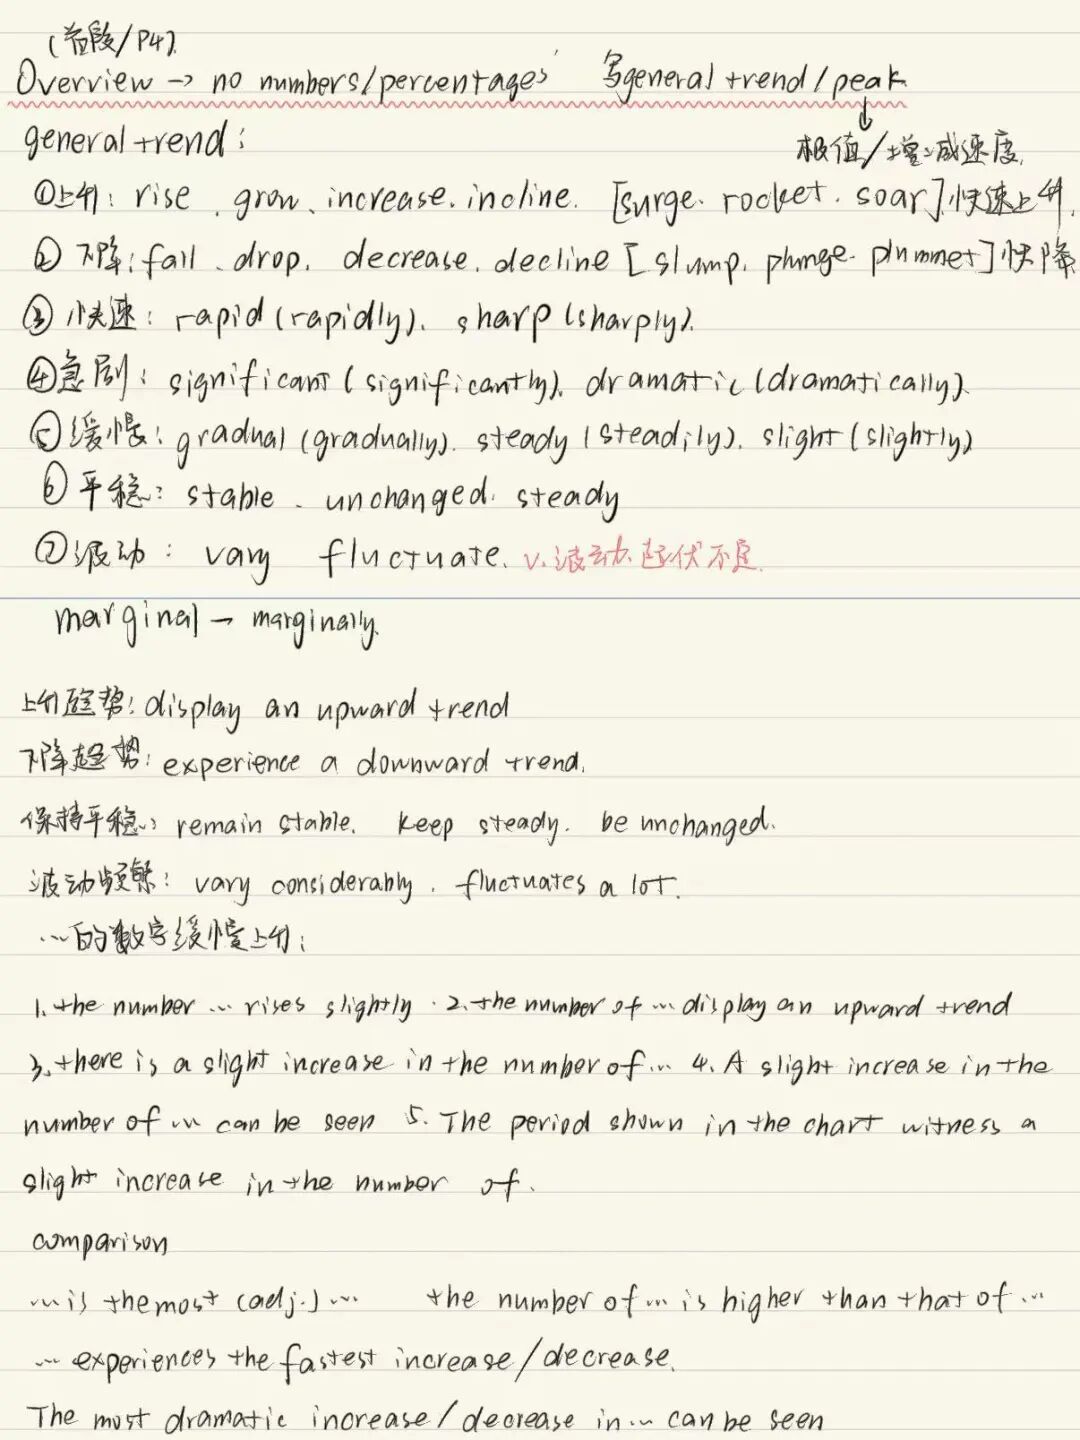 (首段/P4).
Overview → no numbers/percentages 写general trend/peak
↓
general trend: 极值/增减速度.
①上升: rise、grow、increase、incline. [surge、rocket、soar]快速上升.
② 下降: fall、drop、decrease、decline [slump, plunge、plummet]快降
③ 快速: rapid(rapidly)、sharp(sharply).
④急剧: significant(significantly)、dramatic(dramatically)
⑤缓慢: gradual(gradually)、steady(steadily)、slight(slightly)
⑥平稳: stable、unchanged、steady
⑦波动: vary fluctuate. v.波动.起伏不定.
marginal → marginally.
上升趋势: display an upward trend
下降趋势: experience a downward trend.
保持平稳: remain stable. keep steady. be unchanged.
波动频繁: vary considerably. fluctuates a lot.
…的数字缓慢上升:
1. the number … rises slightly. 2. the number of … display an upward trend
3. there is a slight increase in the number of … 4. A slight increase in the
number of … can be seen 5. The period shown in the chart witness a
slight increase in the number of.
comparison
… is the most (adj.) … the number of … is higher than that of …
… experiences the fastest increase/decrease.
The most dramatic increase/decrease in … can be seen